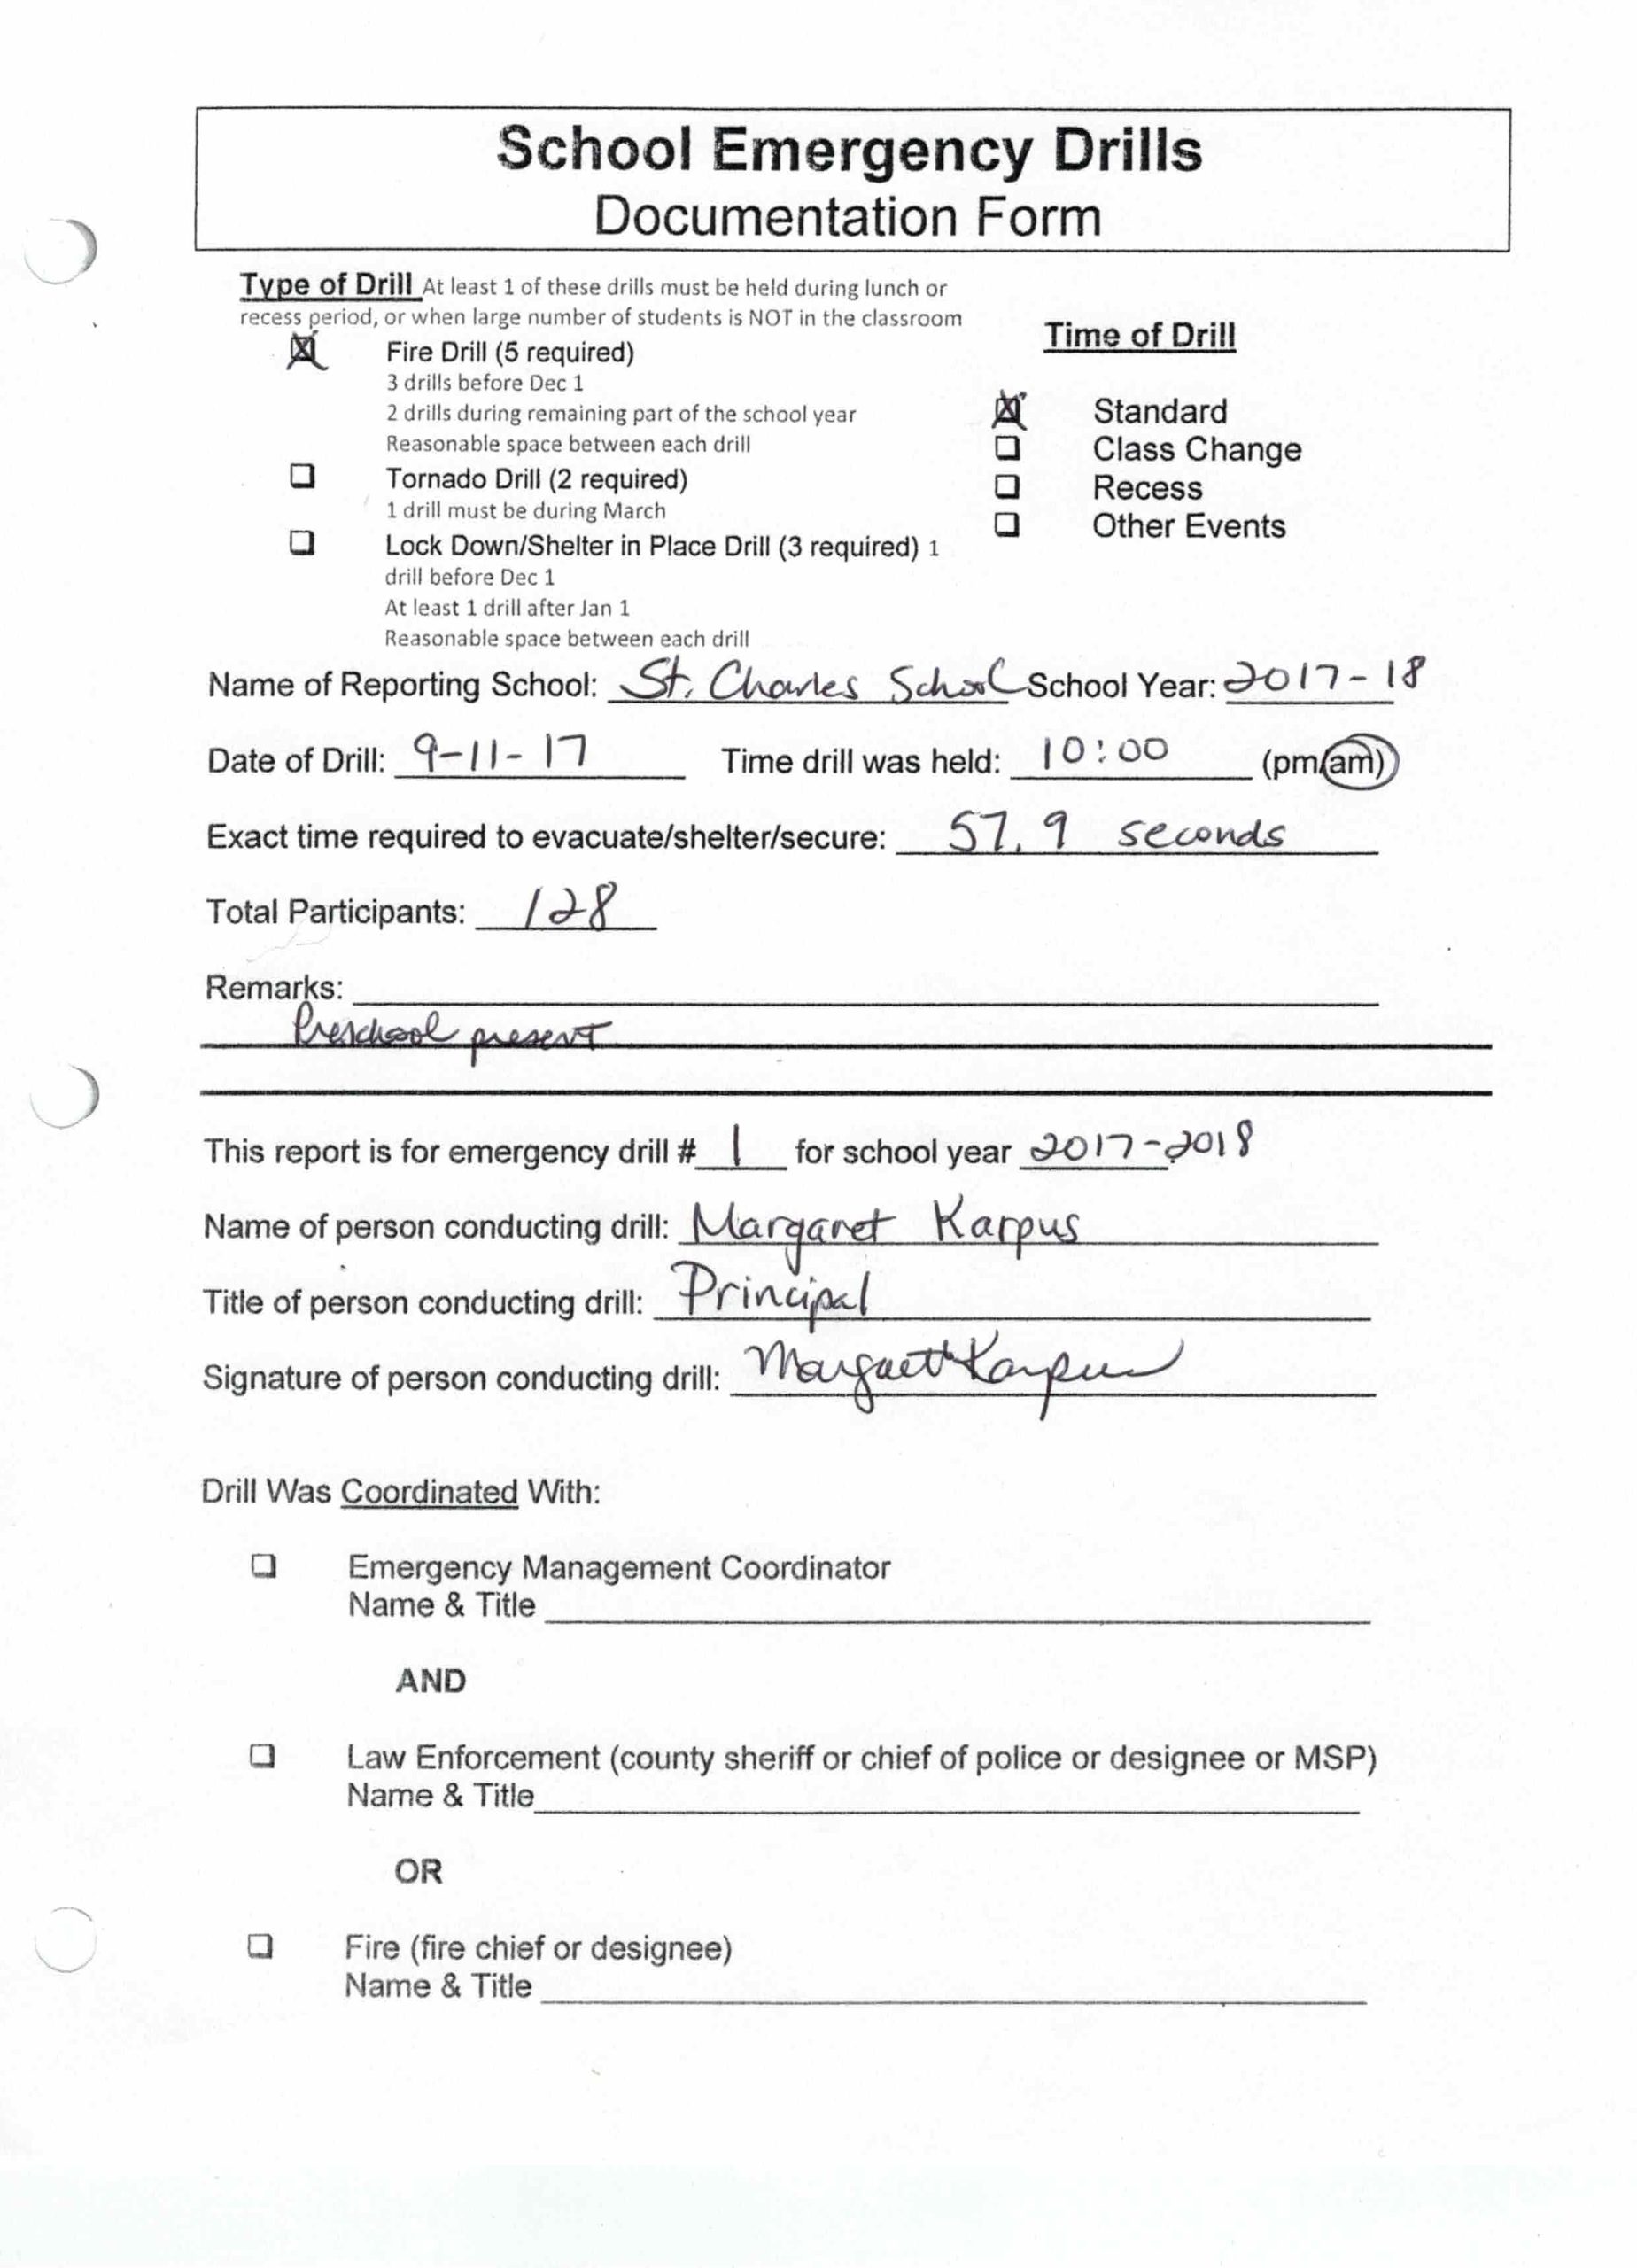 School Emergency Drills
Documentation Form
Type of Drill At least 1 of these drills must be held during lunch or
recess period, or when large number of students is NOT in the classroom
Fire Drill (5 required)
3 drills before Dec 1
2 drills during remaining part of the school year
Reasonable space between each drill
Tornado Drill (2 required)
1 drill must be during March
Lock Down/Shelter in Place Drill (3 required) 1
drill before Dec 1
At least 1 drill after Jan 1
Reasonable space between each drill
Time of Drill
Standard
Class Change
Recess
Other Events
Name of Reporting School: St. Charles School School Year: 2017-18
Date of Drill: 9-11-17 Time drill was held: 10:00 (pm/am)
Exact time required to evacuate/shelter/secure: 57.9 seconds
Total Participants: 128
Remarks:
Preschool present
This report is for emergency drill # 1 for school year 2017-2018
Name of person conducting drill: Margaret Karpus
Title of person conducting drill: Principal
Signature of person conducting drill: Margaret Karpus
Drill Was Coordinated With:
Emergency Management Coordinator
Name & Title
AND
Law Enforcement (county sheriff or chief of police or designee or MSP)
Name & Title
OR
Fire (fire chief or designee)
Name & Title